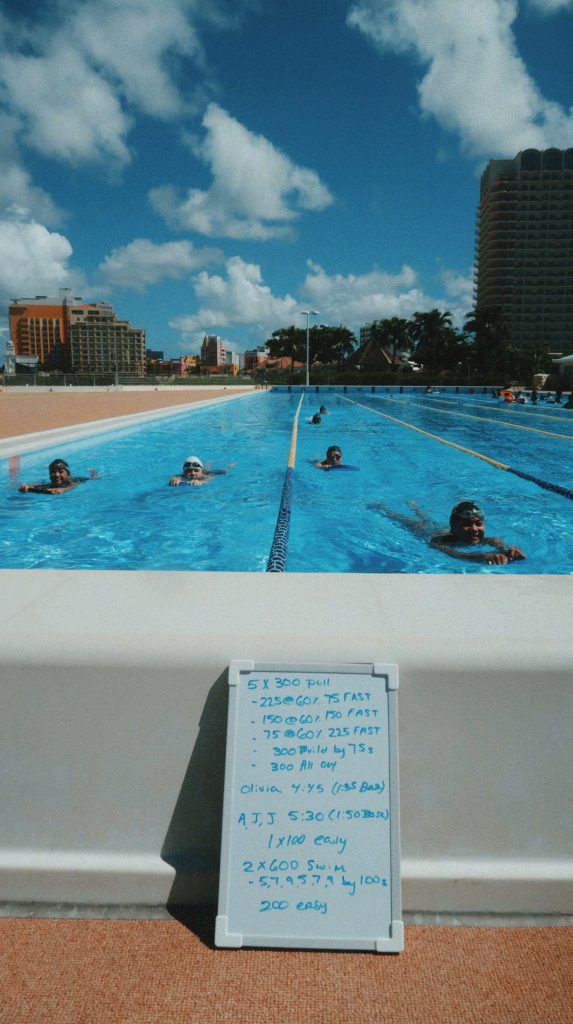 5 X 300 pull
- 225@60% 75 FAST
- 150@60% 150 FAST
- 75@60% 225 FAST
- 300 Build by 75s
- 300 All Out
Olivia 4:45 (1:35 Base)
A, J, J 5:30 (1:50 Base)
1x100 easy
2x600 Swim
- 5,7,9,5,7,9 by 100s
200 easy